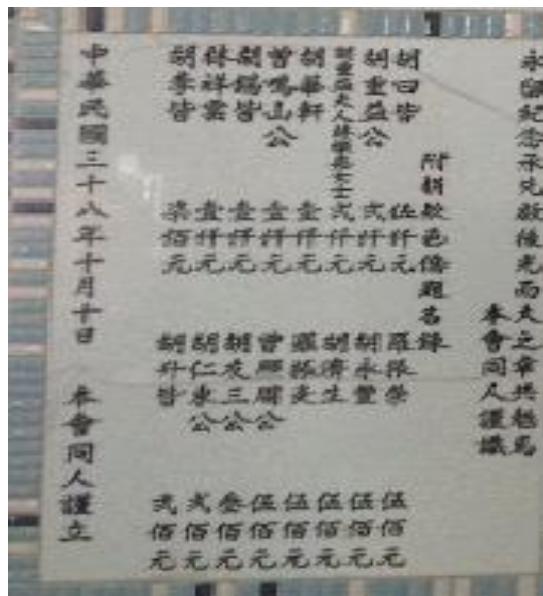 永留紀念承先啟後光而大之幸共勉焉
本會同人謹識
附捐款邑僑題名錄
胡曰皆 伍仟元
胡重益公 弍仟元
胡重益夫人女士 弍仟元
胡華軒 壹仟元
曾鳴山公 壹仟元
胡錫皆 壹仟元
林祥雲 壹仟元
胡季皆 柒佰元
羅振榮 伍佰元
胡永豐 伍佰元
胡濟生 伍佰元
羅振 伍佰元
曾公 伍佰元
胡友三公 叁佰元
胡仁東公 弍佰元
胡升皆 弍佰元
中華民國三十八年十月十日 本會同人謹立